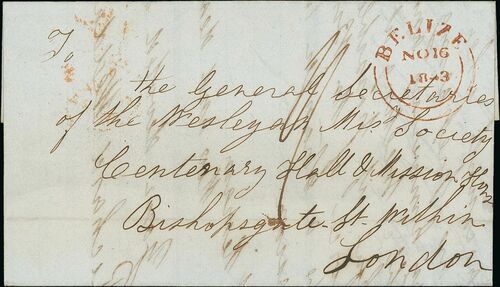 BELIZE
NO 16
1843
To
the General Secretaries
of the Wesleyan Mis.s Society
Centenary Hall & Mission Hous
Bishopsgate St. Within
London